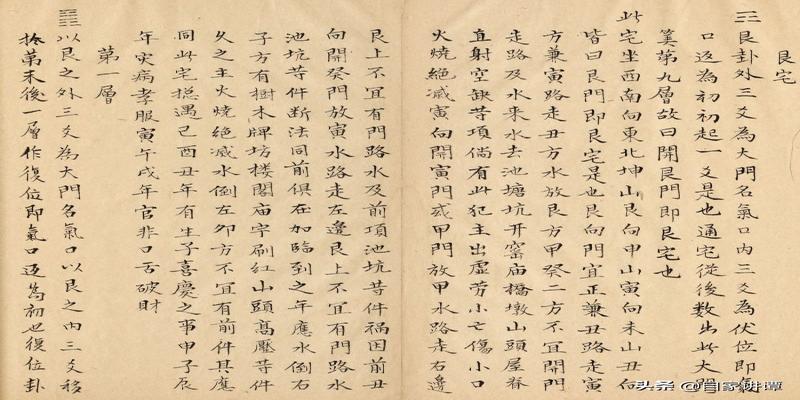 艮宅
三艮卦外三爻為大門名氣口內三爻為伏位即氣
口返為初初起一爻是也通宅從後數出此大門
箕第九層故曰開艮門即艮宅也
此宅坐西南向東北坤山艮向申山寅向未山丑向
皆曰艮門即艮宅是也艮向門宜正兼丑路走寅
方兼寅路走丑方水放艮方甲癸二方不宜開門
走路及水來水去池塘坑井窰庙橋墩山頭屋脊
直射空缺等項倘有此犯主出虛劳小亡傷小口
火燒絕滅寅向開寅門或甲門放甲水路走右邊
艮上不宜有門路水及前項池坑等件禍因前丑
向開癸門放寅水路走左邊艮上不宜有門路水
池坑等件断法同前俱在加臨到之年應水倒右
子方有樹木牌坊楼閣庙宇刷紅山頭高壓等件
久之主火燒絕滅水倒左夘方不宜有前件其應
同此宅揔遇己酉丑年有生子喜慶之事申子辰
年灾病孝服寅午戌年官非口舌破財
第一層
以艮之外三爻為大門名氣口以艮之內三爻移
扵第末後一層作復位即氣口返為初也復位卦
头条 @自家讲谭